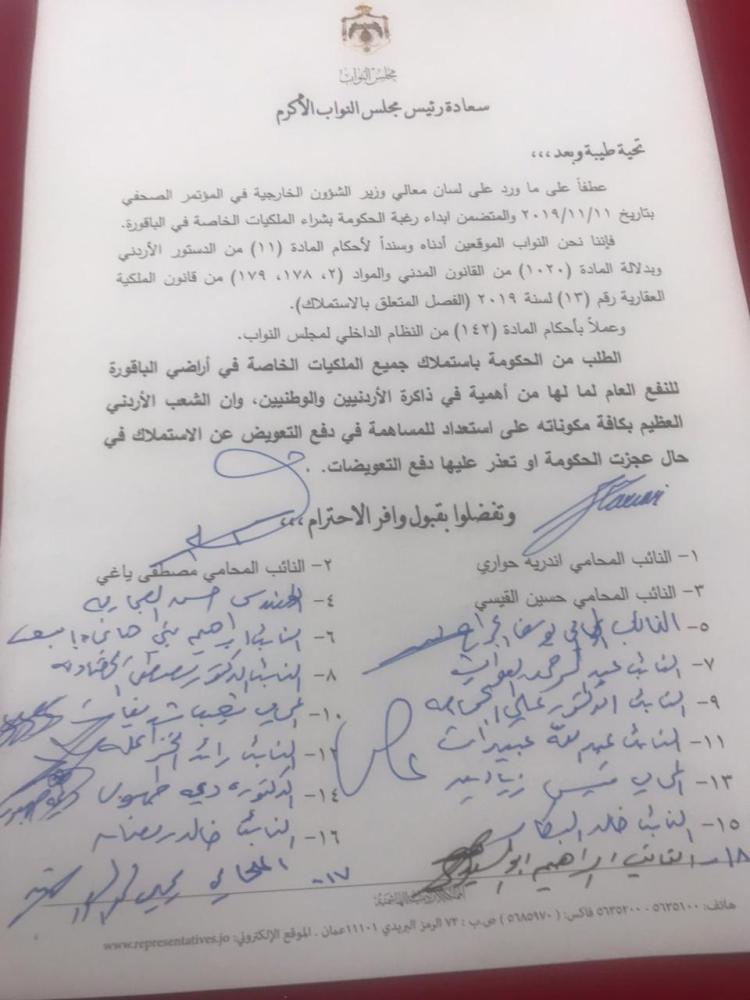 مجلس النواب
سعادة رئيس مجلس النواب الأكرم
تحية طيبة وبعد ،،،
عطفاً على ما ورد على لسان معالي وزير الشؤون الخارجية في المؤتمر الصحفي
بتاريخ ٢٠١٩/١١/١١ والمتضمن ابداء رغبة الحكومة بشراء الملكيات الخاصة في الباقورة.
فإننا نحن النواب الموقعين أدناه وسنداً لأحكام المادة (١١) من الدستور الأردني
وبدلالة المادة (١٠٢٠) من القانون المدني والمواد (٢، ١٧٨، ١٧٩) من قانون الملكية
العقارية رقم (١٣) لسنة ٢٠١٩ (الفصل المتعلق بالاستملاك).
وعملاً بأحكام المادة (١٤٢) من النظام الداخلي لمجلس النواب.
الطلب من الحكومة باستملاك جميع الملكيات الخاصة في أراضي الباقورة
للنفع العام لما لها من أهمية في ذاكرة الأردنيين والوطنيين، وان الشعب الأردني
العظيم بكافة مكوناته على استعداد للمساهمة في دفع التعويض عن الاستملاك في
حال عجزت الحكومة او تعذر عليها دفع التعويضات.
وتفضلوا بقبول وافر الاحترام ،،،
١- النائب المحامي اندريه حواري
٢- النائب المحامي مصطفى ياغي
٣- النائب المحامي حسين القيسي
٤- المهندس
٥- النائب المحامي يوسف الجراح
٦- النائب ابراهيم بني هاني
٧- النائب عبد الرحمن
٨- النائب الدكتور مصطفى
٩- النائب الدكتور علي
١٠- المحامي
١١- النائب عبد الله عبيدات
١٢- النائب رائد الخزاعلة
١٣- المحامي قيس زيادين
١٤- الدكتورة
١٥- النائب خالد البكار
١٦- النائب خالد رمضان
١٧- المحامي
١٨- النائب ابراهيم ابو السيد
المملكة الأردنية الهاشمية
هاتف: ٥٦٣٥١٠٠ - ٥٦٣٥٢٠٠ فاكس: ( ٥٦٨٥٩٧٠ ) ص.ب : ٧٢ الرمز البريدي ١١١٠١عمان . الموقع الإلكتروني: www.representatives.jo